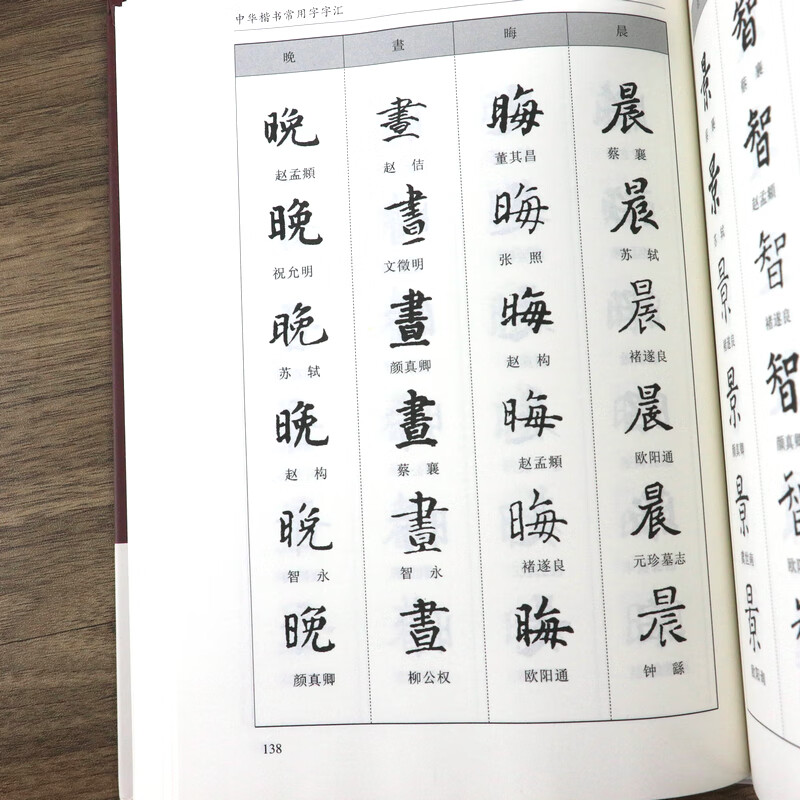 中华楷书常用字字汇
晚 晝 晦 晨
晚 晝 晦 晨
赵孟頫 赵佶 董其昌 蔡襄
晚 晝 晦 晨
祝允明 文徵明 张照 苏轼
晚 晝 晦 晨
苏轼 颜真卿 赵构 褚遂良
晚 晝 晦 晨
赵构 蔡襄 赵孟頫 欧阳通
晚 晝 晦 晨
智永 智永 褚遂良 元珍墓志
晚 晝 晦 晨
颜真卿 柳公权 欧阳通 钟繇
138
景
景
景
褚遂良
景
颜真卿
景
景
欧阳询
智
蔡襄
智
赵孟頫
智
褚遂良
智
颜真卿
智